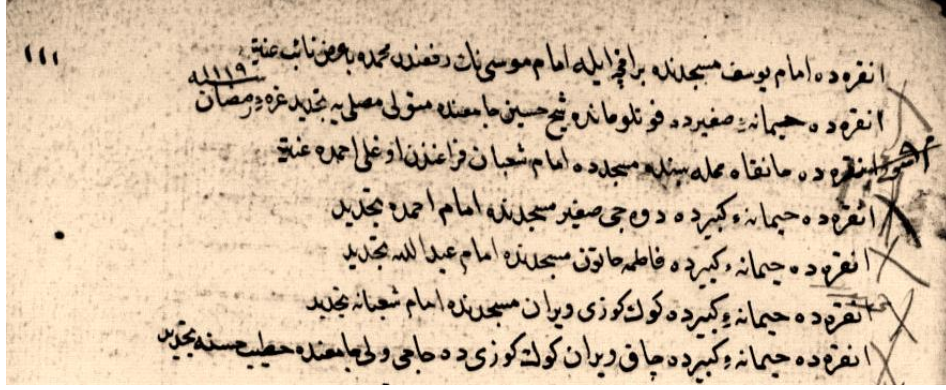 ١١١
انقره ده امام يوسف مسجدنده براقچه ايله امام موسى نك رفعندن محمده با عرض نائب عنايت
انقره ده حيمانهٔ صغيرده قوتلوخانده شيخ حسين جامعنده متولى مصلى يه تجديد غرهٔ رمضان ١١١٩
انقره ده خانقاه محله سنده مسجدده امام شعبان فراغندن اوغلى احمده عنايت
انقره ده حيمانهٔ كبيرده دوه جى صغير مسجدنده امام احمده تجديد
انقره ده حيمانهٔ كبيرده فاطمه خاتون مسجدنده امام عبد الله تجديد
انقره ده حيمانهٔ كبيرده كوك كوزى ويران مسجدنده امام شعبانه تجديد
انقره ده حيمانهٔ كبيرده چاق ويران كوك كوزى ده حاجى ولى جامعنده خطيب حسنه تجديد